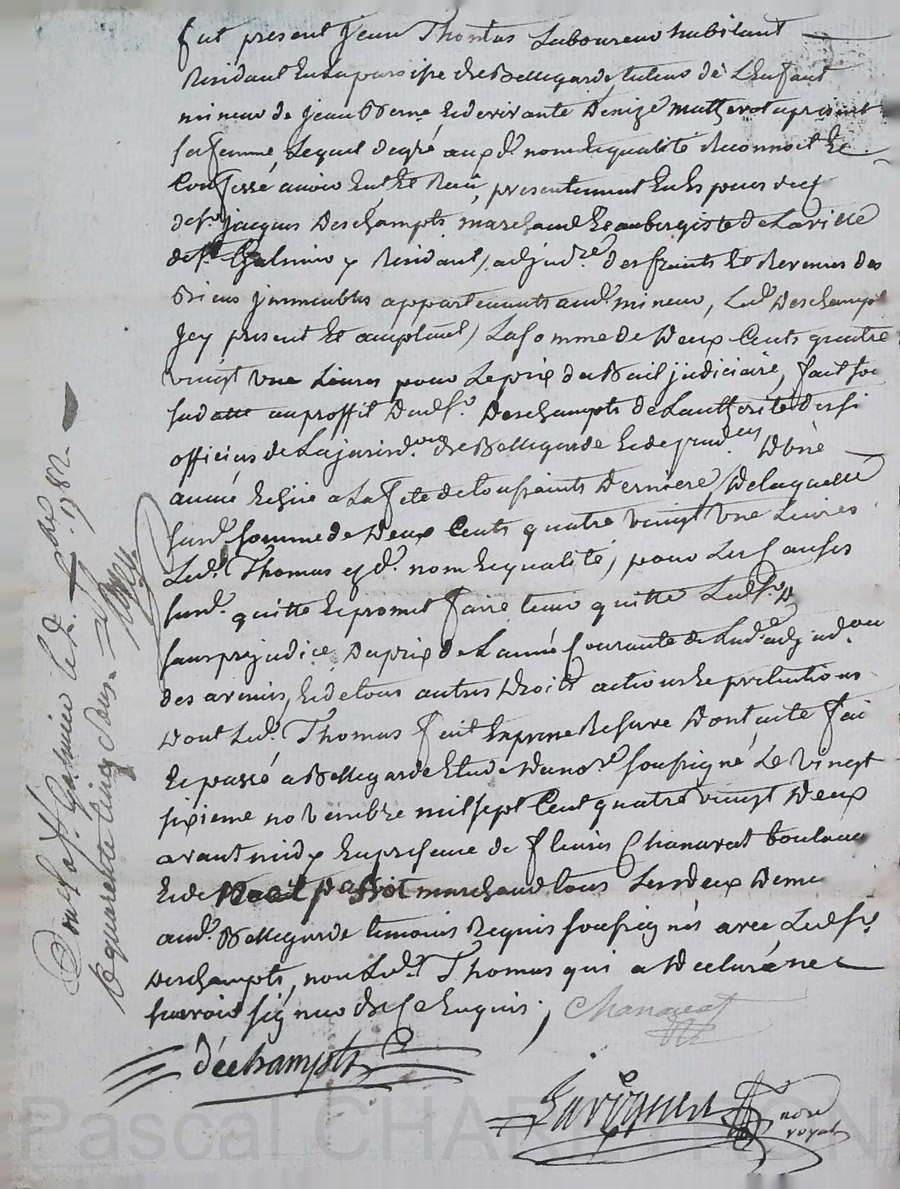 fut present Jean Thomas Laboureur habitant
Residant En La paroisse de Bellegarde tuteur de L'Enfant
mineur de Jean Berne, Et de vivante Denize Mattevot a present
sa femme, Lequel de gré aux dt. nom Et qualité Reconnoit Et
Confessé avoir Eu Et Reçu, presentement En Especes de cf
de Sr. Jacques Deschampts marchand Et aubergiste de La ville
de St. Galmier y Residant, adjudre. des fruits Et Revenus des
Biens immeubles appartenants aud. mineur, Led. Deschampt
Icy present Et aceptant, La somme de Deux Cents quatre
vingt une Livres pour Le prix du Bail judiciaire, fait
au proffit Dud. Sr. Deschampts de L'autthorité de
officiers de La jurisdon. de Bellegarde Et de D'une
année Echue a La fete de toussaints Derniere, De laquelle
susd. somme de Deux Cents quatre vingt une Livres
Led. Thomas esd. nom Et qualité, pour Les Causes
susd. quitte Et promet faire tenir quitte Led. Sr. D
sans prejudice Du prix de L'année Courante de Lad. adjudon.
des avenirs, Et de tous autres Droits actions Et pretentions
Dont Led. Thomas fait Expresse Reserve Dont acte fai
Et passé a Bellegarde Etude Du nore. soussigné, Le vingt
sixieme novembre mil sept Cent quatre vingt Deux
avant midy En presence de fleuris Chanavat
Et de Noel passot marchand tous Les deux Deme
aud. Bellegarde temoins Requis soussignés avec Led. Sr.
Deschampts, non Led. Thomas qui a Declaré ne
scavoir signer de Ce Enquis ;
Chanavat
déchampts
nore
royal
Conlé a St. Galmier Le xbre 1782
R quarente Cinq sous